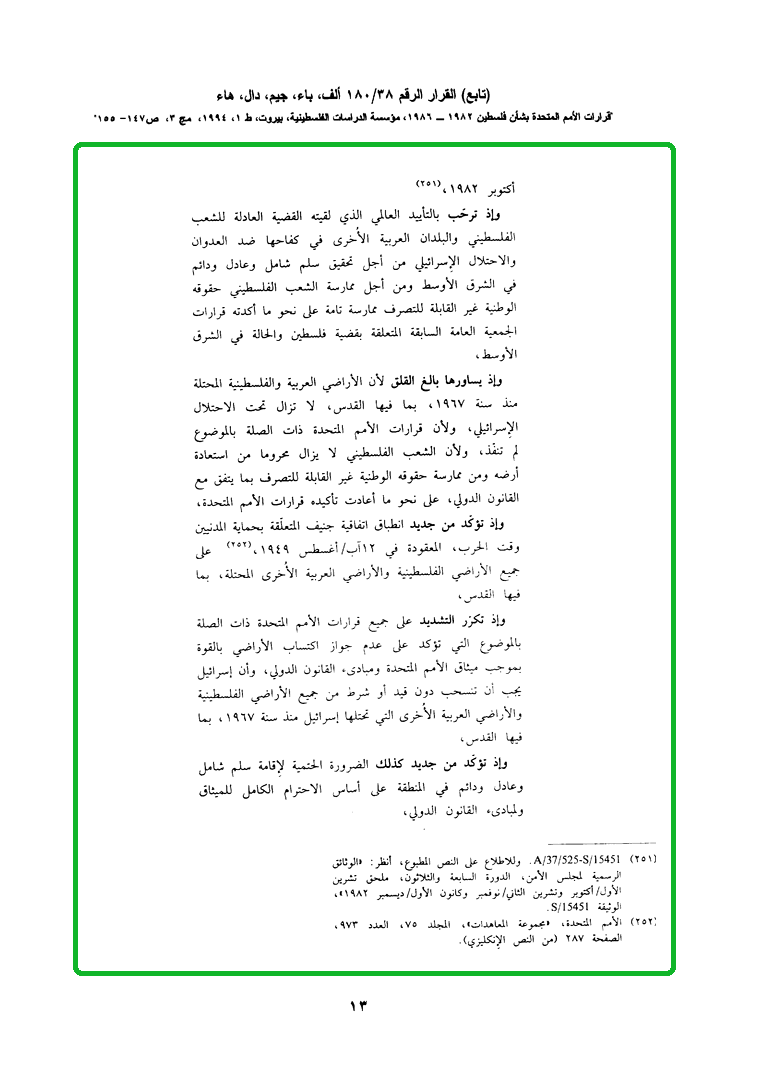 (تابع) القرار الرقم ١٨٠/٣٨ ألف، باء، جيم، دال، هاء
"قرارات الأمم المتحدة بشأن فلسطين ١٩٨٢ ـــ ١٩٨٦، مؤسسة الدراسات الفلسطينية، بيروت، ط ١، ١٩٩٤، مج ٣، ص١٤٧- ١٥٥"
أكتوبر ١٩٨٢،(٢٥١)
وإذ ترحّب بالتأييد العالمي الذي لقيته القضية العادلة للشعب
الفلسطيني والبلدان العربية الأخرى في كفاحها ضد العدوان
والاحتلال الإسرائيلي من أجل تحقيق سلم شامل وعادل ودائم
في الشرق الأوسط ومن أجل ممارسة الشعب الفلسطيني حقوقه
الوطنية غير القابلة للتصرف ممارسة تامة على نحو ما أكدته قرارات
الجمعية العامة السابقة المتعلقة بقضية فلسطين والحالة في الشرق
الأوسط،
وإذ يساورها بالغ القلق لأن الأراضي العربية والفلسطينية المحتلة
منذ سنة ١٩٦٧، بما فيها القدس، لا تزال تحت الاحتلال
الإسرائيلي، ولأن قرارات الأمم المتحدة ذات الصلة بالموضوع
لم تنفّذ، ولأن الشعب الفلسطيني لا يزال محروما من استعادة
أرضه ومن ممارسة حقوقه الوطنية غير القابلة للتصرف بما يتفق مع
القانون الدولي، على نحو ما أعادت تأكيده قرارات الأمم المتحدة،
وإذ تؤكّد من جديد انطباق اتفاقية جنيف المتعلّقة بحماية المدنيين
وقت الحرب، المعقودة في ١٢آب/أغسطس ١٩٤٩،(٢٥٢) على
جميع الأراضي الفلسطينية والأراضي العربية الأخرى المحتلة، بما
فيها القدس،
وإذ تكرّر التشديد على جميع قرارات الأمم المتحدة ذات الصلة
بالموضوع التي تؤكد على عدم جواز اكتساب الأراضي بالقوة
بموجب ميثاق الأمم المتحدة ومبادىء القانون الدولي، وأن إسرائيل
يجب أن تنسحب دون قيد أو شرط من جميع الأراضي الفلسطينية
والأراضي العربية الأخرى التي تحتلها إسرائيل منذ سنة ١٩٦٧، بما
فيها القدس،
وإذ تؤكّد من جديد كذلك الضرورة الحتمية لإقامة سلم شامل
وعادل ودائم في المنطقة على أساس الاحترام الكامل للميثاق
ولمبادىء القانون الدولي،
(٢٥١) A/37/525-S/15451. وللاطلاع على النص المطبوع، أنظر: «الوثائق
الرسمية لمجلس الأمن، الدورة السابعة والثلاثون، ملحق تشرين
الأول/أكتوبر وتشرين الثاني/نوفمبر وكانون الأول/ديسمبر ١٩٨٢»،
الوثيقة S/15451.
(٢٥٢) الأمم المتحدة، «مجموعة المعاهدات»، المجلد ٧٥، العدد ٩٧٣،
الصفحة ٢٨٧ (من النص الإنكليزي).
١٣